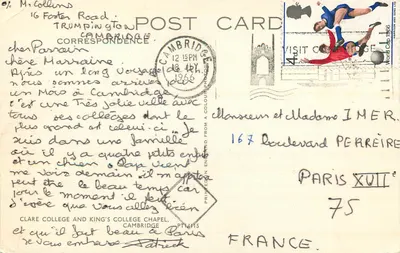 c/o McCollins
16 Foster Road:
TRUMPINGTON
CAMBRIDGE
POST CARD
CORRESPONDENCE
cher Parrain
chère Marraine.
Après un long voyage
nous sommes arrivés pour
un mois à Cambridge
c'est une très jolie ville avec
tous ses collèges dont le
plus grand est celui-ci. Je
suis dans une famille
où il y a quatre petits enfants
et un chien. Papa vient
me voir demain il m'apporte
peut être le beau temps car
pour le moment il pleut
J'espère que vous allez bien
CLARE COLLEGE AND KING'S COLLEGE CHAPEL,
CAMBRIDGE
et qu'il fait beau à Paris
je vous embrasse Patrick
CAMBRIDGE
12 15 PM
1966
VISIT CAMBRIDGE
4d
Monsieur et Madame IMER.
167 boulevard PEREIRE
PARIS XVII e
75
FRANCE.